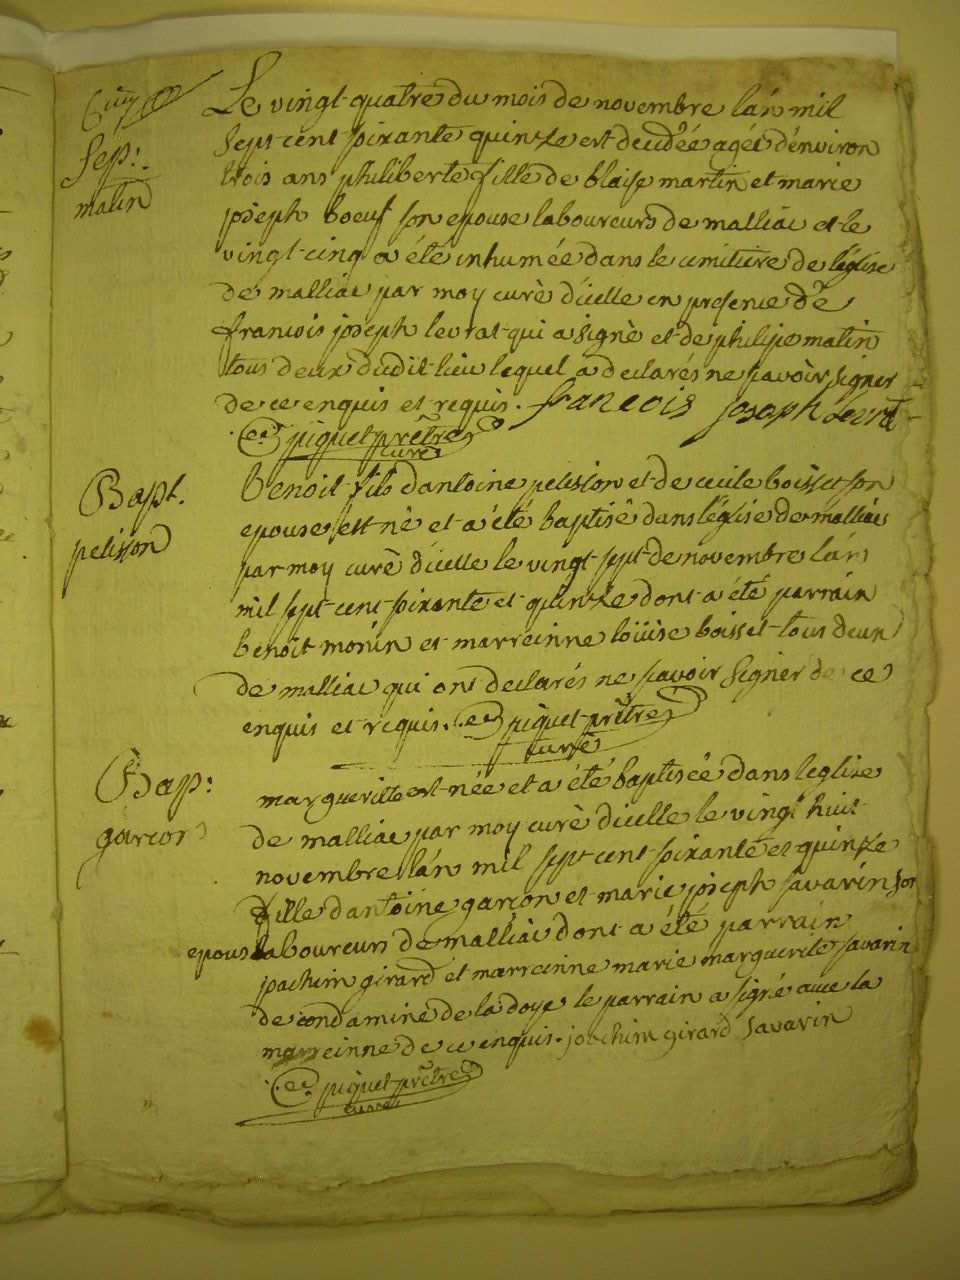 Sep:
matin
Le vingt quatre du mois de novembre lan mil
sept cent soixante quinze est decedée agée d'environ
trois ans philiberte fille de blaise martin et marie
joseph boeuf son epouse laboureurs de malliac et le
vingt cinq a été inhumée dans le cimitiere de l'eglise
de malliac par moy curè d'icelle en presence de
francois joseph levrat qui a signè et de philipe matin
tous deux dudit lieu lequel a declarés ne savoir signer
de ce enquis et requis. francois joseph Levrat
piquet prêtre
curé
Bapt.
pelisson
benoit fils dantoine pelisson et de cecile boisset son
epouse est nè et a été baptisé dans léglise de malliac
par moy curè d'icelle le vingt sept de novembre lan
mil sept cent soixante et quinze dont a été parrain
benoit monin et marreinne loüise boisset tous deux
de malliac qui ont declarés ne savoir signer de ce
enquis et requis. piquet prêtre
curé
Bap:
garcon
margueritte est née et a été baptisée dans leglise
de malliac par moy curè d'icelle le vingt huit
novembre lan mil sept cent soixante et quinze
fille dantoine garçon et marie joseph savarin son
epouse laboureurs de malliac dont a été parrain
joachim girard et marreinne marie marguerite savarin
de condamine de la doye le parrain a signé avec la
marreinne de ce enquis. joachim girard savarin
piquet prêtre
curé